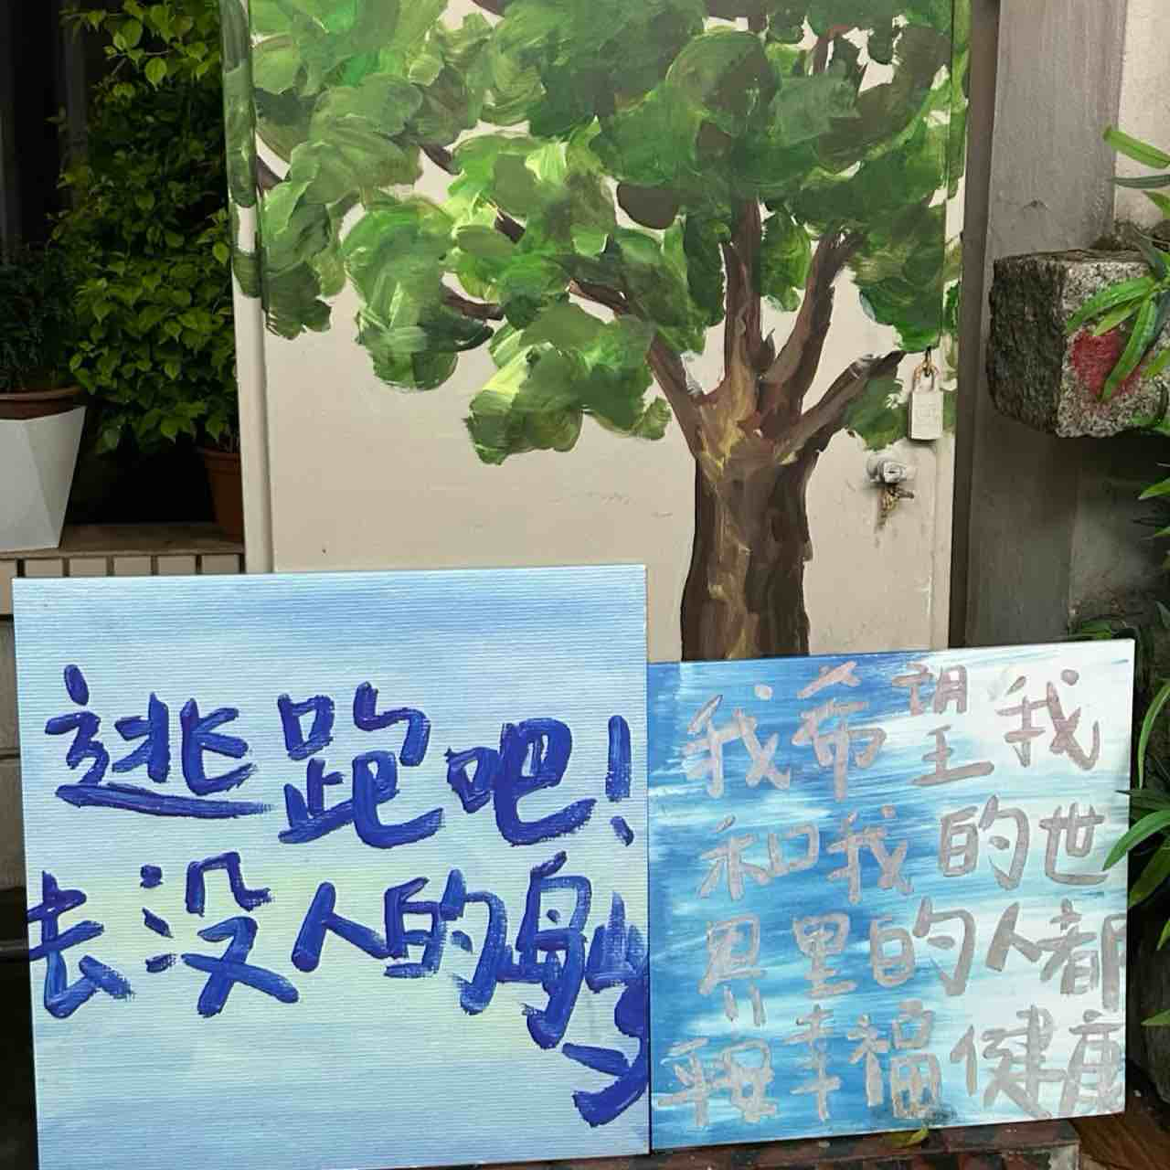 逃跑吧!
去没人的岛屿
我希望我
和我的世
界里的人都
平安幸福健康